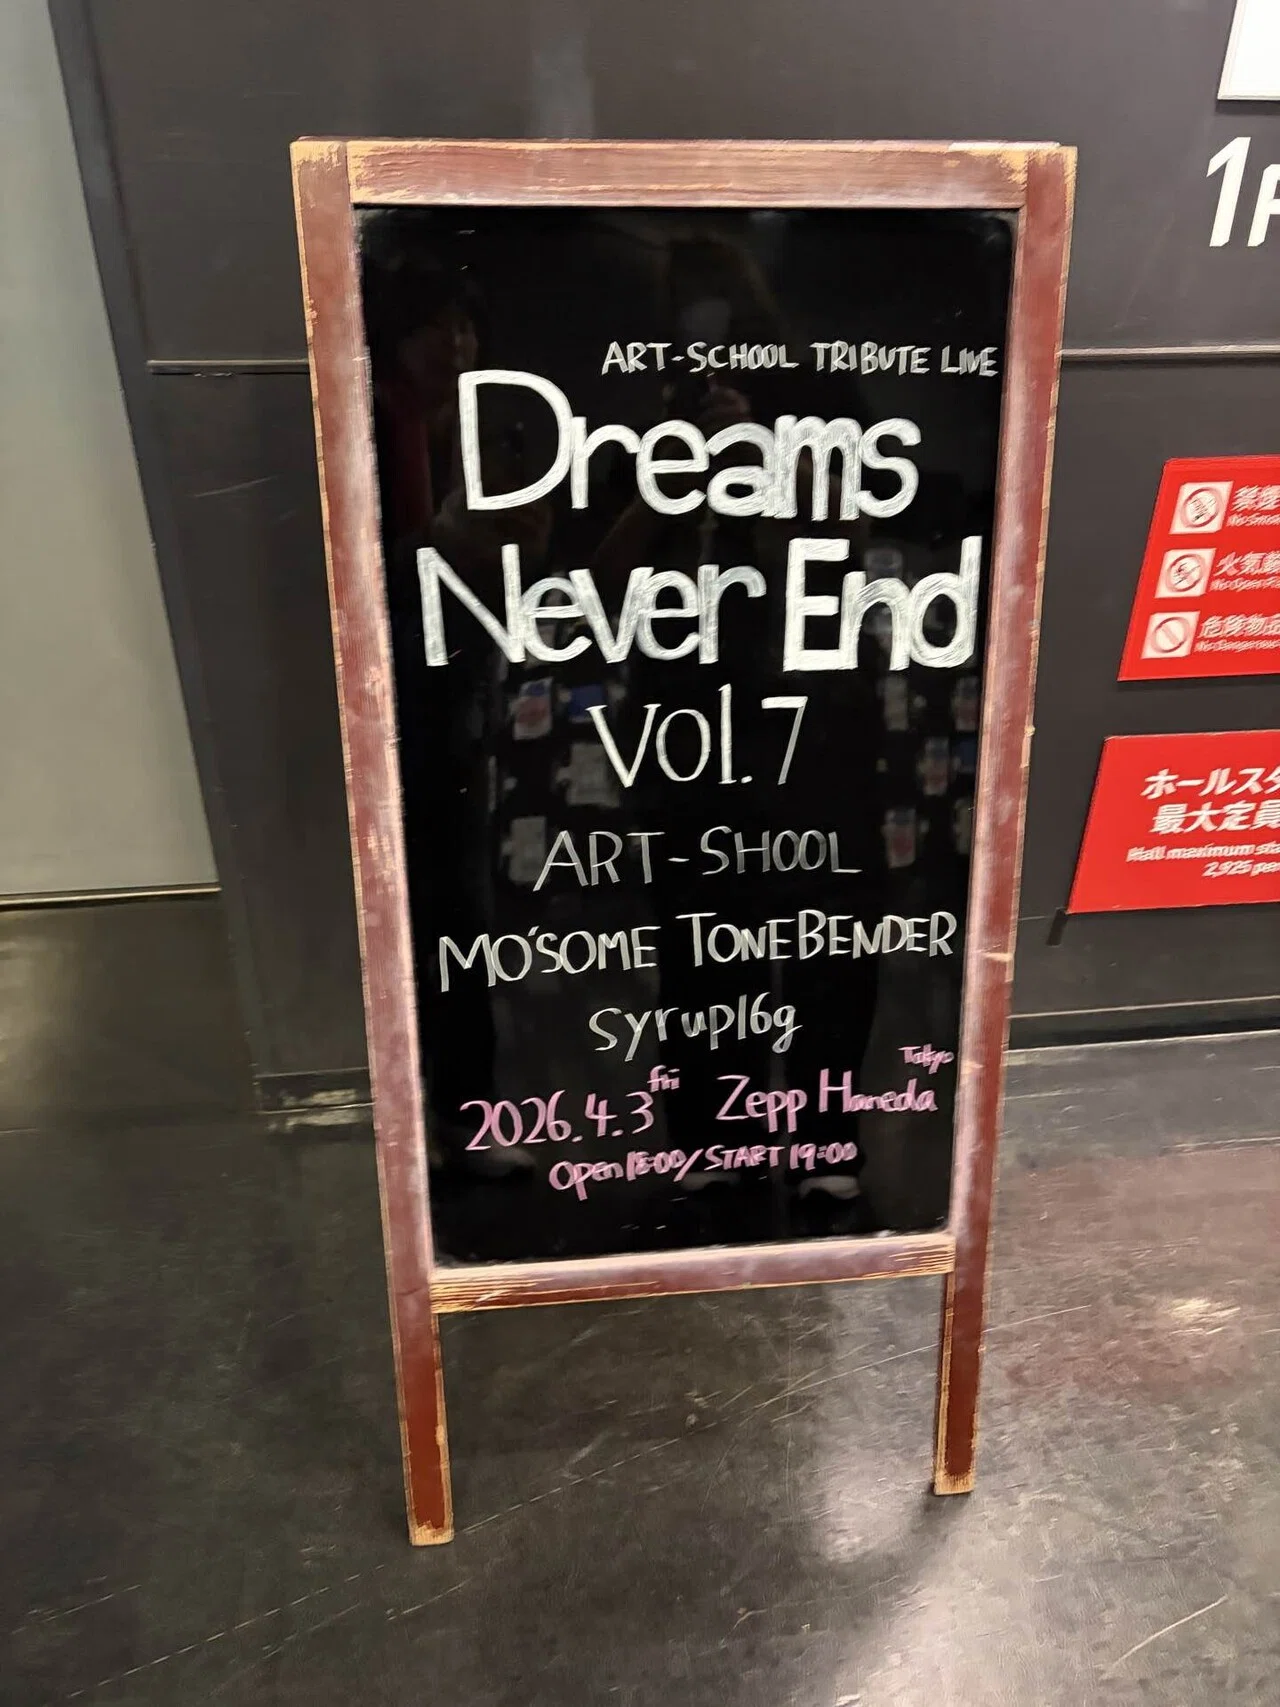 ART-SCHOOL TRIBUTE LIVE
Dreams
Never End
Vol.7
ART-SHOOL
MO'SOME TONEBENDER
syrup16g
2026.4.3 fri Zepp Haneda Tokyo
Open 18:00/START 19:00
1F
禁煙
火気厳
危険物品
ホールスタ
最大定員
Hall maximum sta
2,925 pe